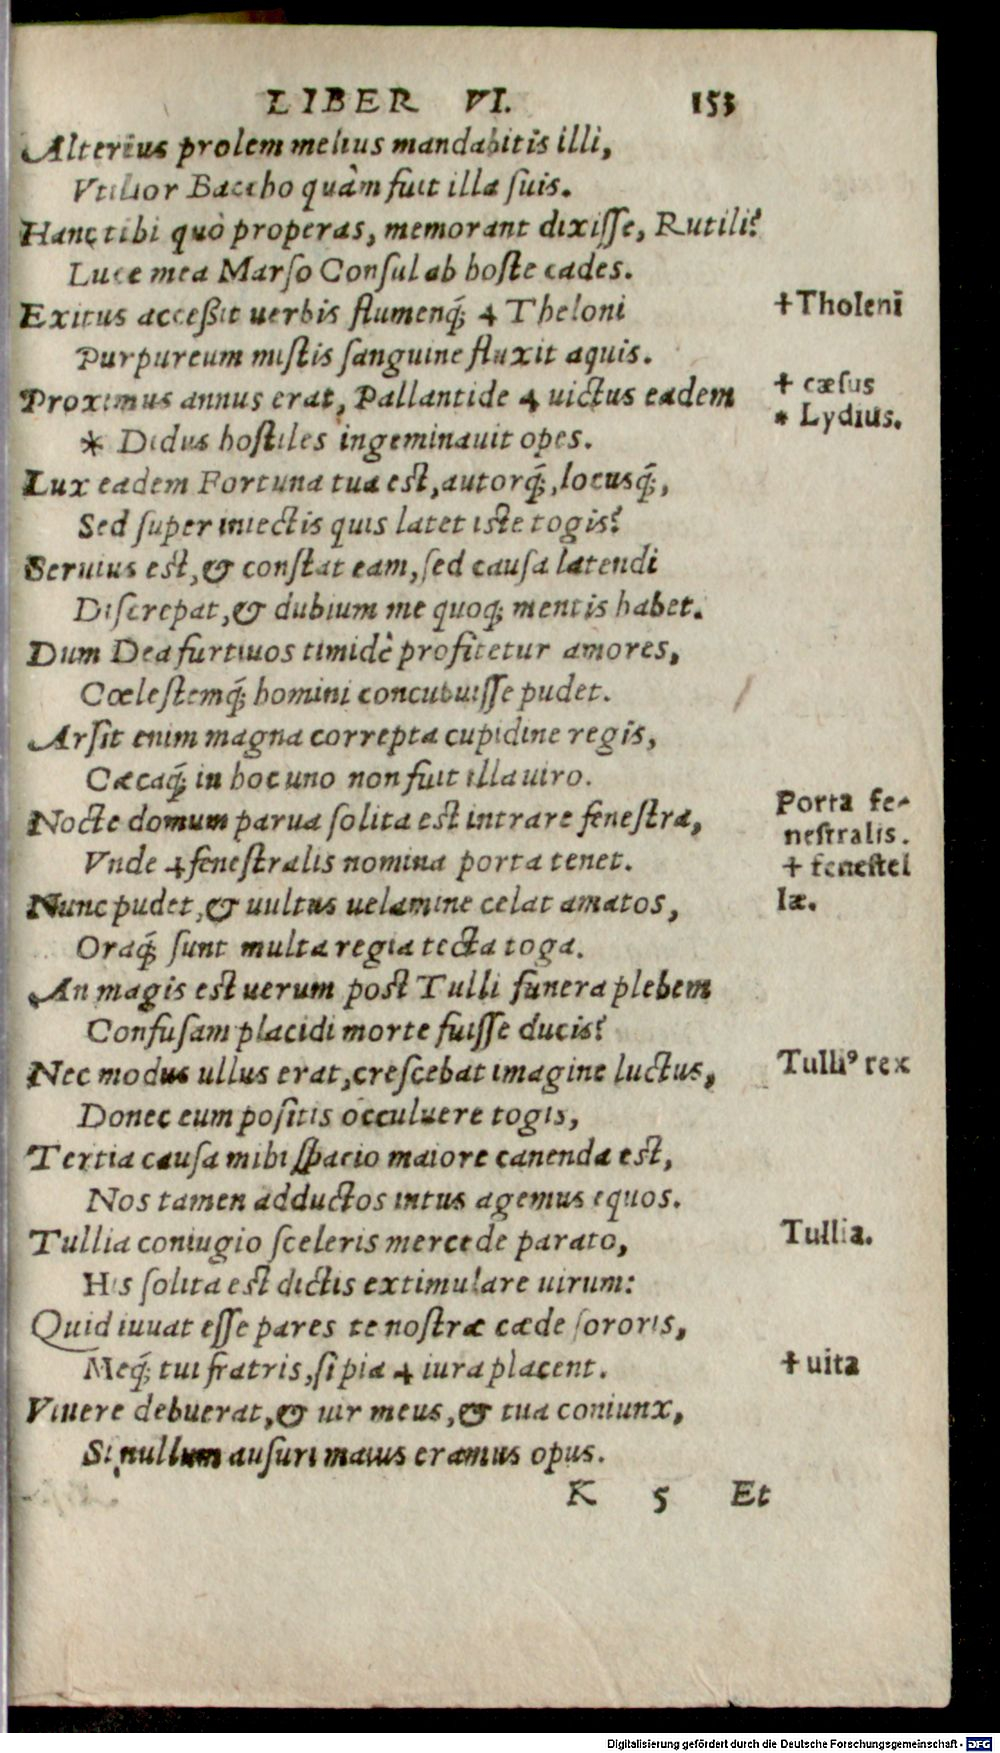 LIBER VI. 153
Alterius prolem melius mandabitis illi,
Vtilior Baccho quàm fuit illa suis.
Hanc tibi quò properas, memorant dixisse, Rutili?
Luce mea Marso Consul ab hoste cades.
Exitus acceßit uerbis flumenq́; ⸸ Theloni
✝Tholenī
Purpureum mistis sanguine fluxit aquis.
Proximus annus erat, Pallantide ⸸ uictus eadem
✝ cæsus
* Didus hostiles ingeminauit opes.
* Lydius.
Lux eadem Fortuna tua est, autorq́;, locusq́;,
Sed super iniectis quis latet iste togis?
Seruius est, & constat eam, sed causa latendi
Discrepat, & dubium me quoq; mentis habet.
Dum Dea furtiuos timidè profitetur amores,
Cœlestemq́; homini concubuisse pudet.
Arsit enim magna correpta cupidine regis,
Cæcaq́; in hoc uno non fuit illa uiro.
Nocte domum parua solita est intrare fenestra,
Porta fe-
nestralis.
Vnde ⸸fenestralis nomina porta tenet.
✝ fenestel
Nunc pudet, & uultus uelamine celat amatos,
læ.
Oraq́; sunt multa regia tecta toga.
An magis est uerum post Tulli funera plebem
Confusam placidi morte fuisse ducis?
Nec modus ullus erat, crescebat imagine luctus,
Tulliꝰ rex
Donec eum positis occuluere togis,
Tertia causa mihi spacio maiore canenda est,
Nos tamen adductos intus agemus equos.
Tullia coniugio sceleris mercede parato,
Tullia.
His solita est dictis extimulare uirum:
Quid iuuat esse pares te nostræ cæde sororis,
Meq́; tui fratris, si pia ⸸ iura placent.
✝uita
Viuere debuerat, & uir meus, & tua coniunx,
Si nullum ausuri maius eramus opus.
K 5 Et
Digitalisierung gefördert durch die Deutsche Forschungsgemeinschaft - DFG